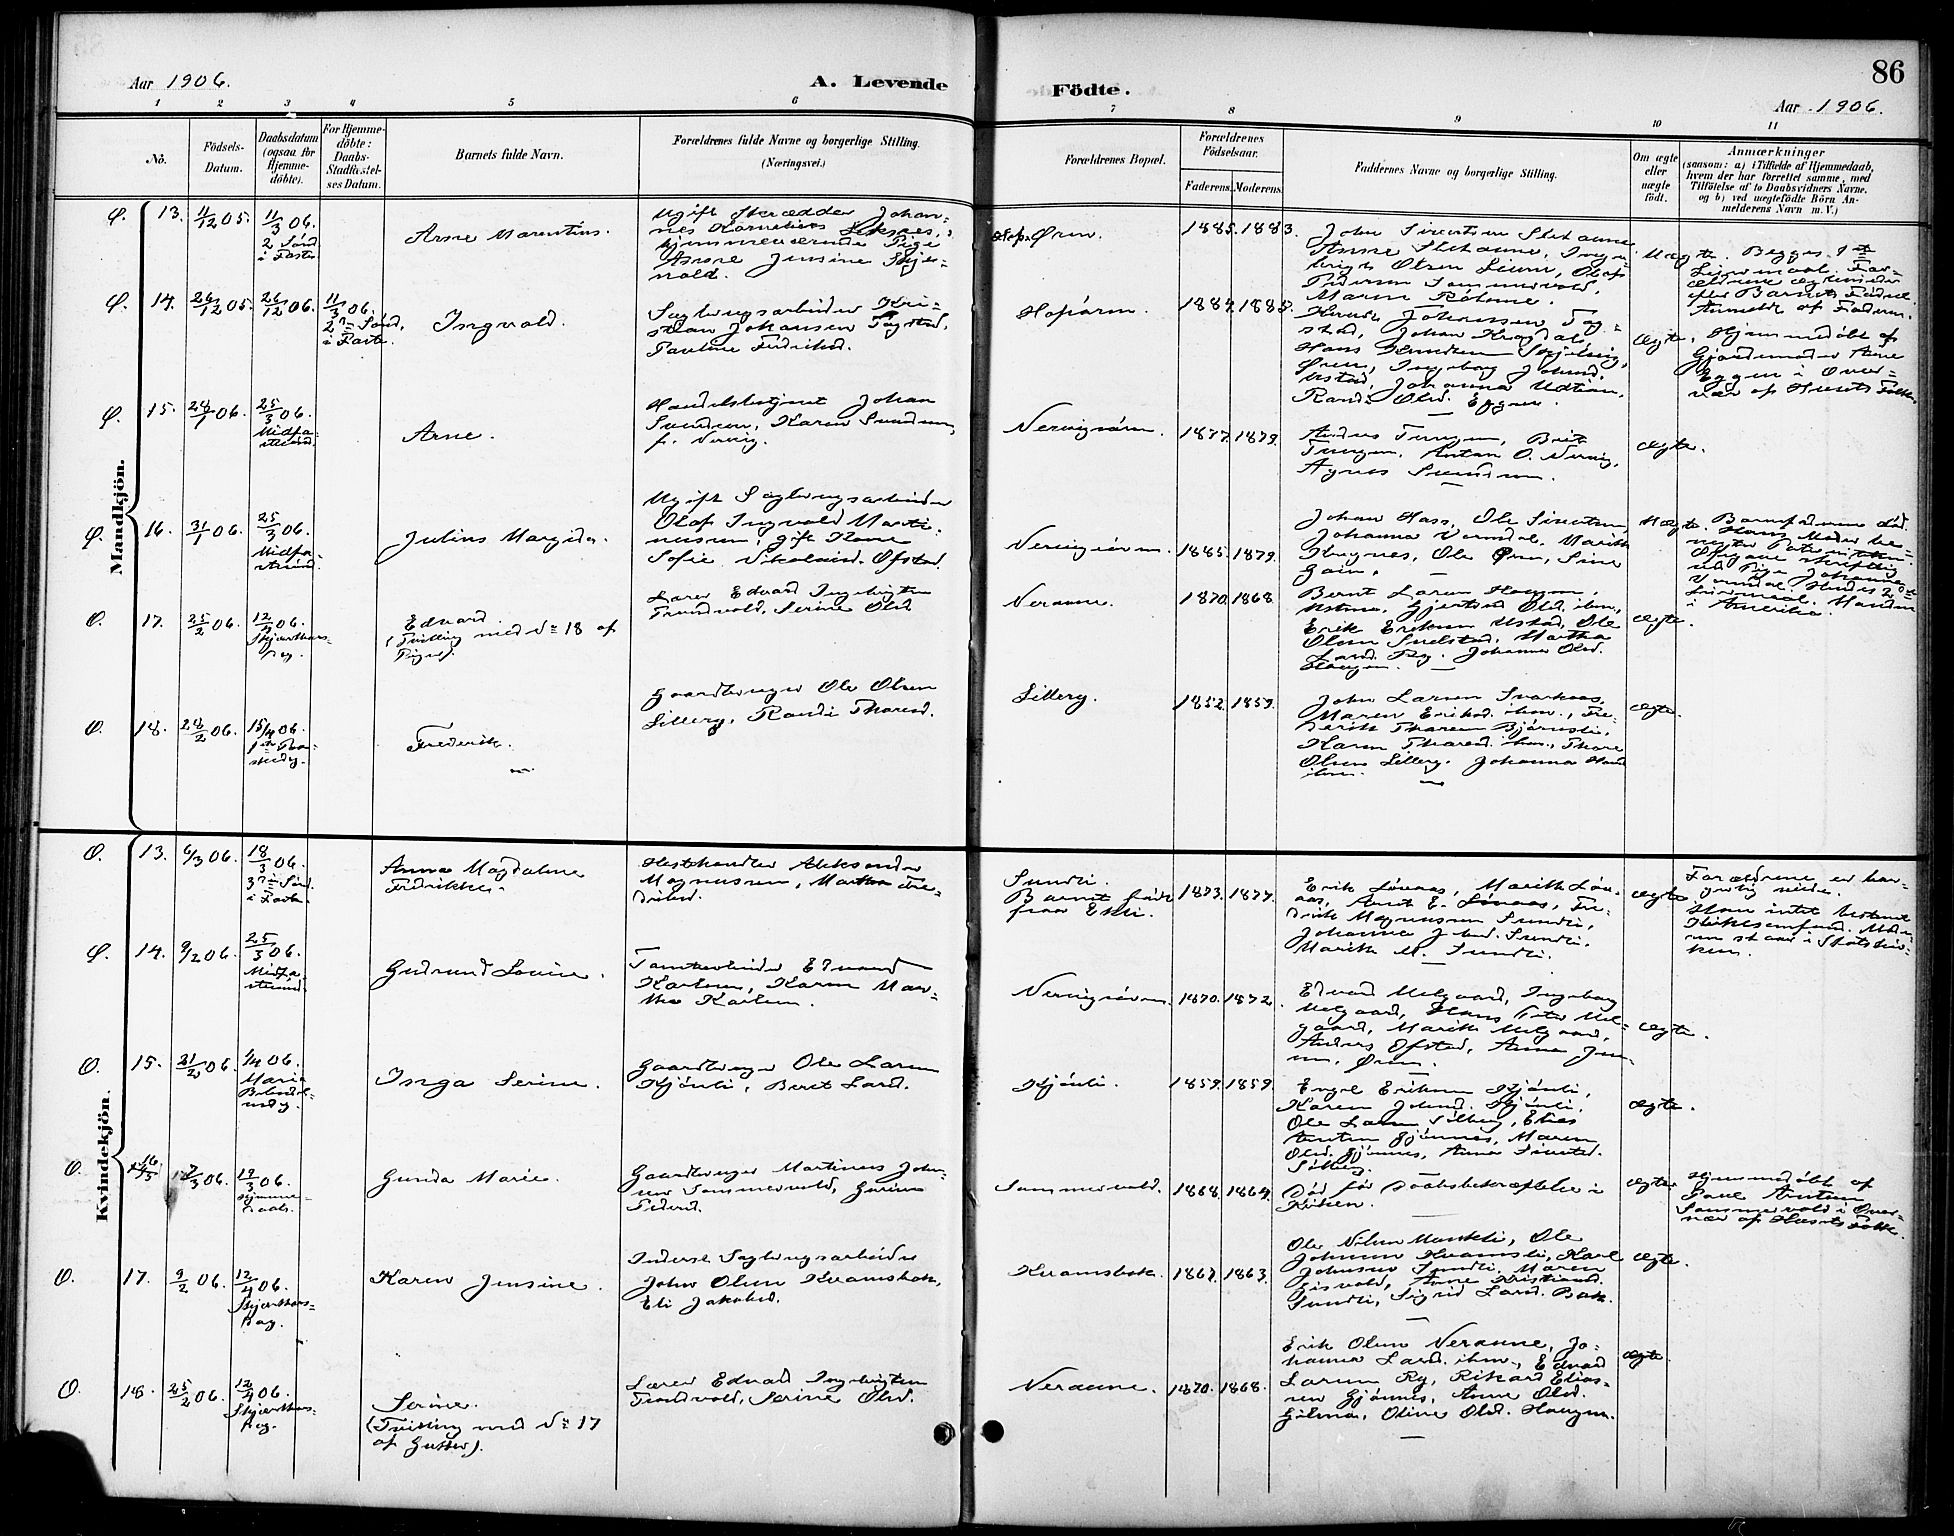 Aar 1906.
A. Levende
Födte.
86
Aar 1906.
1 2 3 4 5 6 7 8 9 10 11
No.
Födsels-
Datum.
Daabsdatum
(ogsaa for
Hjemme-
döbte).
For Hjemme-
döbte:
Daabs-
Stadfæstel-
ses Datum.
Barnets fulde Navn.
Forældrenes fulde Navne og borgerlige Stilling.
(Næringsvei.)
Forældrenes Bopæl.
Forældrenes
Födselsaar.
Faderens.
Moderens.
Faddernes Navne og borgerlige Stilling.
Om ægte
eller
uægte
födt.
Anmærkninger
(saasom: a) i Tilfælde af Hjemmedaab,
hvem der har forrettet samme, med
Tilföielse af to Daabsvidners Navne.
og b) ved uægtefödte Börn An-
melderens Navn m. V.)
Mandkjön.
13.
11/12 05.
11/3 06.
2 Sönd.
i Faste
Arne Marentius.
Ugift Skrædder Johan-
nes
hjemmeværende Pige
Jensine Skjer-
vold.
Øren.
1885. 1883.
John Sivertsen
Anne
Olsen
Pedersen Sommervold,
Maren
Uægte.
Begges 1ste
Leiermaal. For-
ældrene
efter Barnets Födsel.
Anmeldt af Faderen.
14.
26/12 05.
26/12 06.
11/3 06.
2den Sönd.
i Faste.
Ingvald.
Sagbrugsarbeider Kri-
stian Johansen
Pauline Fredriksd.
Hopören.
1884. 1885.
Johansen
Johan Krogdal,
Hans Knudsen
Øren, Ingeborg Johnsd.
Ustad, Johanna
Randi Olsd. Eggen.
ægte.
Hjemmedöbt af
Gjordemoder Anne
Eggen i Over-
vær af Husets Folk.
15.
28/1 06.
25/3 06.
Midfa-
stesönd.
Arne.
Handelsbetjent Johan
Svendsen, Karen Svendsen,
f. Nervig.
Nervigsören.
1877. 1879.
Anders Tungen, Brit
Tungen, Anton O. Nervig,
Agnes Svendsen.
ægte.
16.
31/1 06.
25/3 06.
Midfa-
stesönd.
Julius Margido.
Ugift Sagbrugsarbeider
Olaf Ingvald Marti-
nussen, gift Kone
Sofie Nikolaisd. Øfstad.
Nervigsören.
1885. 1879.
Johan Hass, Ole Sivertsen
Johanna Vormdal, Marith
Ole Øren, Sine
Uægte.
Barnefaderen död.
Hans Moder be-
Pige Johanna
Vormdal. Hendes 2det
Leiermaal. Manden
i Amerika.
17.
25/2 06.
12/4 06.
Skjærthors-
dag.
Edvard.
(Tvilling med No 18 af
Piger).
Lærer Edvard Ingebrigtsen
Trondvold, Serine Olsd.
Neraune.
1870. 1868.
Bernt Larsen Haugen,
Gjertrud Olsd. ibm,
Erik Eriksen Ustad, Ole
Olsen Snelstad, Martha
Larsd. Ry. Johanna Olsd.
Haugen.
ægte.
18.
28/2 06.
15/4 06.
1ste Paa-
skedg.
Frederik.
Gaardbruger Ole Olsen
Silberg, Randi Thoresd.
Silberg.
1852. 1859.
John Larsen
Maren Eriksd. ibm., Fre-
derik Thoresen Bjørnli,
Karen Thoresd. ibm., Thore
Olsen Silberg. Johanna
ibm.
ægte.
Kvindekjön.
13.
6/3 06.
18/3 06.
3die Sönd.
i Faste.
Anna Magdalene
Fredrikke.
Hestehandler Aleksander
Magnussen, Martha Fre-
driksd.
Sundli.
Barnet födt
paa Ekli.
1873. 1877.
Erik Lönaas, Marith Lön-
aas, Arnt E. Lönaas, Fre-
drik Magnussen Sundli,
Johanna J. Sundli.
Marith M. Sundli.
ægte.
Forældrene er bor-
gerlig viede.
Han intet bestemt
Kirkesamfund. Mode-
ren staar i Statskir-
ken.
14.
9/2 06.
25/3 06.
Midfa-
stesönd.
Gudrund Lovise.
Tomtearbeider Edvard
Karlsen, Karen Mar-
the Karlsen.
Nervigsören.
1870. 1872.
Edvard Melgaard, Ingeborg
Melgaard, Hans Peter Mel-
gaard, Marith Melgaard,
Anders Øfstad, Anna Jen-
sen, Øren.
ægte.
15.
21/2 06.
1/4 06.
Maria
Bebudel-
sesdg.
Inga Serine.
Gaardbruger Ole Larsen
Kjönli, Beret Larsd.
Kjönli.
1859. 1859.
Engel Eriksen Kjönli,
Karen Johnsd. Kjönli,
Ole Larsen Silberg, Elias
Arntsen Gjönnes, Maren
Olsd. Gjönnes, Anna
Silberg.
ægte.
16
7/3 06.
17/3 06.
Hjemme-
daab.
Gunda Marie.
Gaardbruger Martinus John-
sen Sommervold, Gurine
Pedersd.
Sommervold.
1868. 1864.
Död för Daabsbekræftelse i
Kirken.
ægte.
Hjemmedöbt af
Paul Arntsen
Sommervold i Over-
vær af Husets Folk.
17.
9/2 06.
12/4 06.
Skjærthors-
dag.
Karen Jensine.
Inderst Sagbrugsarbeider
John Olsen Kvamsbak,
Eli Jakobsd.
Kvamsbak.
1867. 1863.
Ole Nilsen Monkli, Ole
Johnsen Kvamsli, Karl
Johnsen Sundli, Maren
Eisvold, Anne Kristiansd.
Sundli, Sigrid Larsd. Bak.
ægte.
18.
25/2 06.
12/4 06.
Skjærthors-
dag.
Serine.
(Tvilling med No 17
af Gutter).
Lærer Edvard Ingebrigtsen
Trondvold, Serine Olsd.
Neraune.
1870. 1868.
Erik Olsen Neraune, Jo-
hanna Larsd. ibm., Edvard
Larsen Ry, Rikard Elias-
sen Gjönnes, Anne Olsd.
Oline Olsd. Haugen.
ægte.